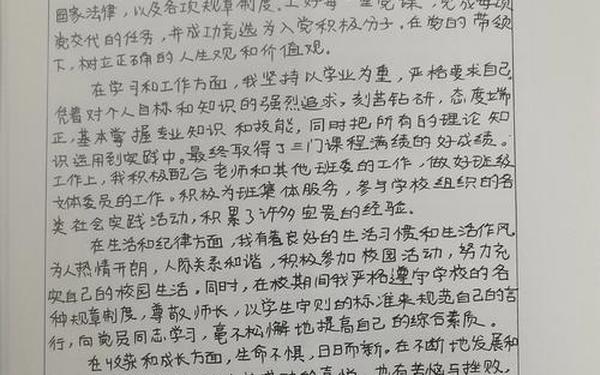 国家法律，以及各项规章制度。上好每一堂党课，完成每项
党交代的任务，并成功竞选为入党积极分子。在党的带领
下，树立正确的人生观和价值观。
在学习和工作方面，我坚持以学业为重，严格要求自己，
凭着对个人目标和知识的强烈追求，刻苦钻研，态度端
正，基本掌握专业知识和技能，同时把所有的理论知
识运用到实践中。最终取得了三门课程满绩的好成绩。
工作上，我积极配合老师和其他班委的工作，做好班级
文体委员的工作。积极为班集体服务，参与学校组织的各
类社会实践活动，积累了许多宝贵的经验。
在生活和纪律方面，我有着良好的生活习惯和生活作风，
为人热情开朗，人际关系和谐，积极参加校园活动，努力充
实自己的校园生活。同时，在校期间我严格遵守学校的各
种规章制度，尊敬师长，以学生守则的标准来规范自己的言
行，向党员同志学习，毫不松懈地提高自己的综合素质。
在收获和成长方面，生命不惧，日日而新。在不断地发展和
的喜悦，也有苦恼与挫败，